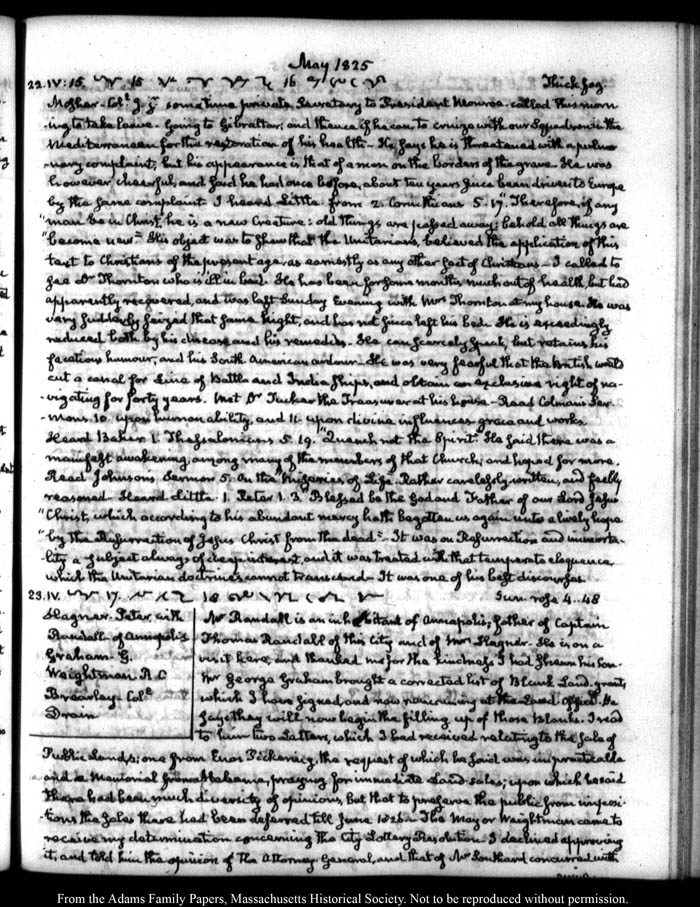 May 1825
22. IV: 15. 15 16 Thick fog.
Mosher. Coll. J. G. sometime private Secretary to President Monroe called this morn-
-ing to take leave. Going to Gibraltar; and thence if he can to cruize with our Squadron in the
Mediterranean for the restoration of his health. He says he is threatened with a pulmo-
-nary complaint, but his appearance is that of a man on the borders of the grave. He was
however cheerful, and said he had once before, about ten years since been driven to Europe
by the same complaint. I heard Little from 2. Corinthians 5. 17. Therefore, if any
"man be in Christ, he is a new Creature: old things are passed away; behold all things are
"become new." His object was to shew that the Unitarians, believed the application of this
text to Christians of the present age, as earnestly as any other sect of Christians. I called to
see Dr. Thornton who is ill in bed. He has been for some months much out of health, but had
apparently recovered, and was last Sunday Evening with Mrs. Thornton at my house. He was
very suddenly seized that same Night, and has not since left his bed. He is exceedingly
reduced both by his disease and his remedies. He can scarcely speak, but retains his
facetious humour, and his South American ardour. He was very fearful that the British would
cut a canal for Line of Battle and India Ships, and obtain an exclusive right of na-
-vigating for forty years. Met Dr. Tucker the Treasurer at his house. Read Colman's Ser-
-mons 10. upon human ability, and 11. upon divine influences grace and works.
Heard Baker 1. Thessalonians 5. 19. "Quench not the Spirit." He said there was a
manifest awakening among many of the members of that Church, and hoped for more.
Read Johnson's Sermon 5. On the Miseries of Life. Rather carelessly written, and feebly
reasoned. Heard Little. 1. Peter 1. 3. Blessed be the God and Father of our Lord Jesus
"Christ, which according to his abundant mercy hath begotten us again unto a lively hope
"by the Resurrection of Jesus Christ from the dead." It was on Resurrection and immorta-
-lity a subject always of deep interest, and it was treated with that temperate eloquence
which the Unitarian doctrines cannot transcend. It was one of his best discourses.
23. IV. 17. 18 Sun rose 4..48
Hagner. Peter, with
Randall of Annapolis
Graham. G.
Weightman. R C
Brearley. Coll.
Drain
Mr. Randall is an inhabitant of Annapolis, father of Captain
Thomas Randall of this City and of Mrs. Hagner. He is on a
visit here, and thanked me for the kindness I had shewn his Son.
Mr. George Graham brought a corrected list of Blank Land grants,
which I have signed, and now remaining at the Land Office. He
says they will now begin the filling up of those Blanks. I read
to him two Letters, which I had received relating to the sale of
Public Lands; one from Enos Pickering, the request of which he said was impracticable
and a Memorial from Alabama, praying for immediate Land sales; upon which he said
there had been much diversity of opinions, but that to preserve the public from imposi-
-tions the sales there had been deferred till June 1826. The Mayor Weightman came to
receive my determination concerning the City Lottery Resolution. I declined approving
it, and told him the opinion of the Attorney General, and that of Mr. Southard concurred with
From the Adams Family Papers, Massachusetts Historical Society. Not to be reproduced without permission.